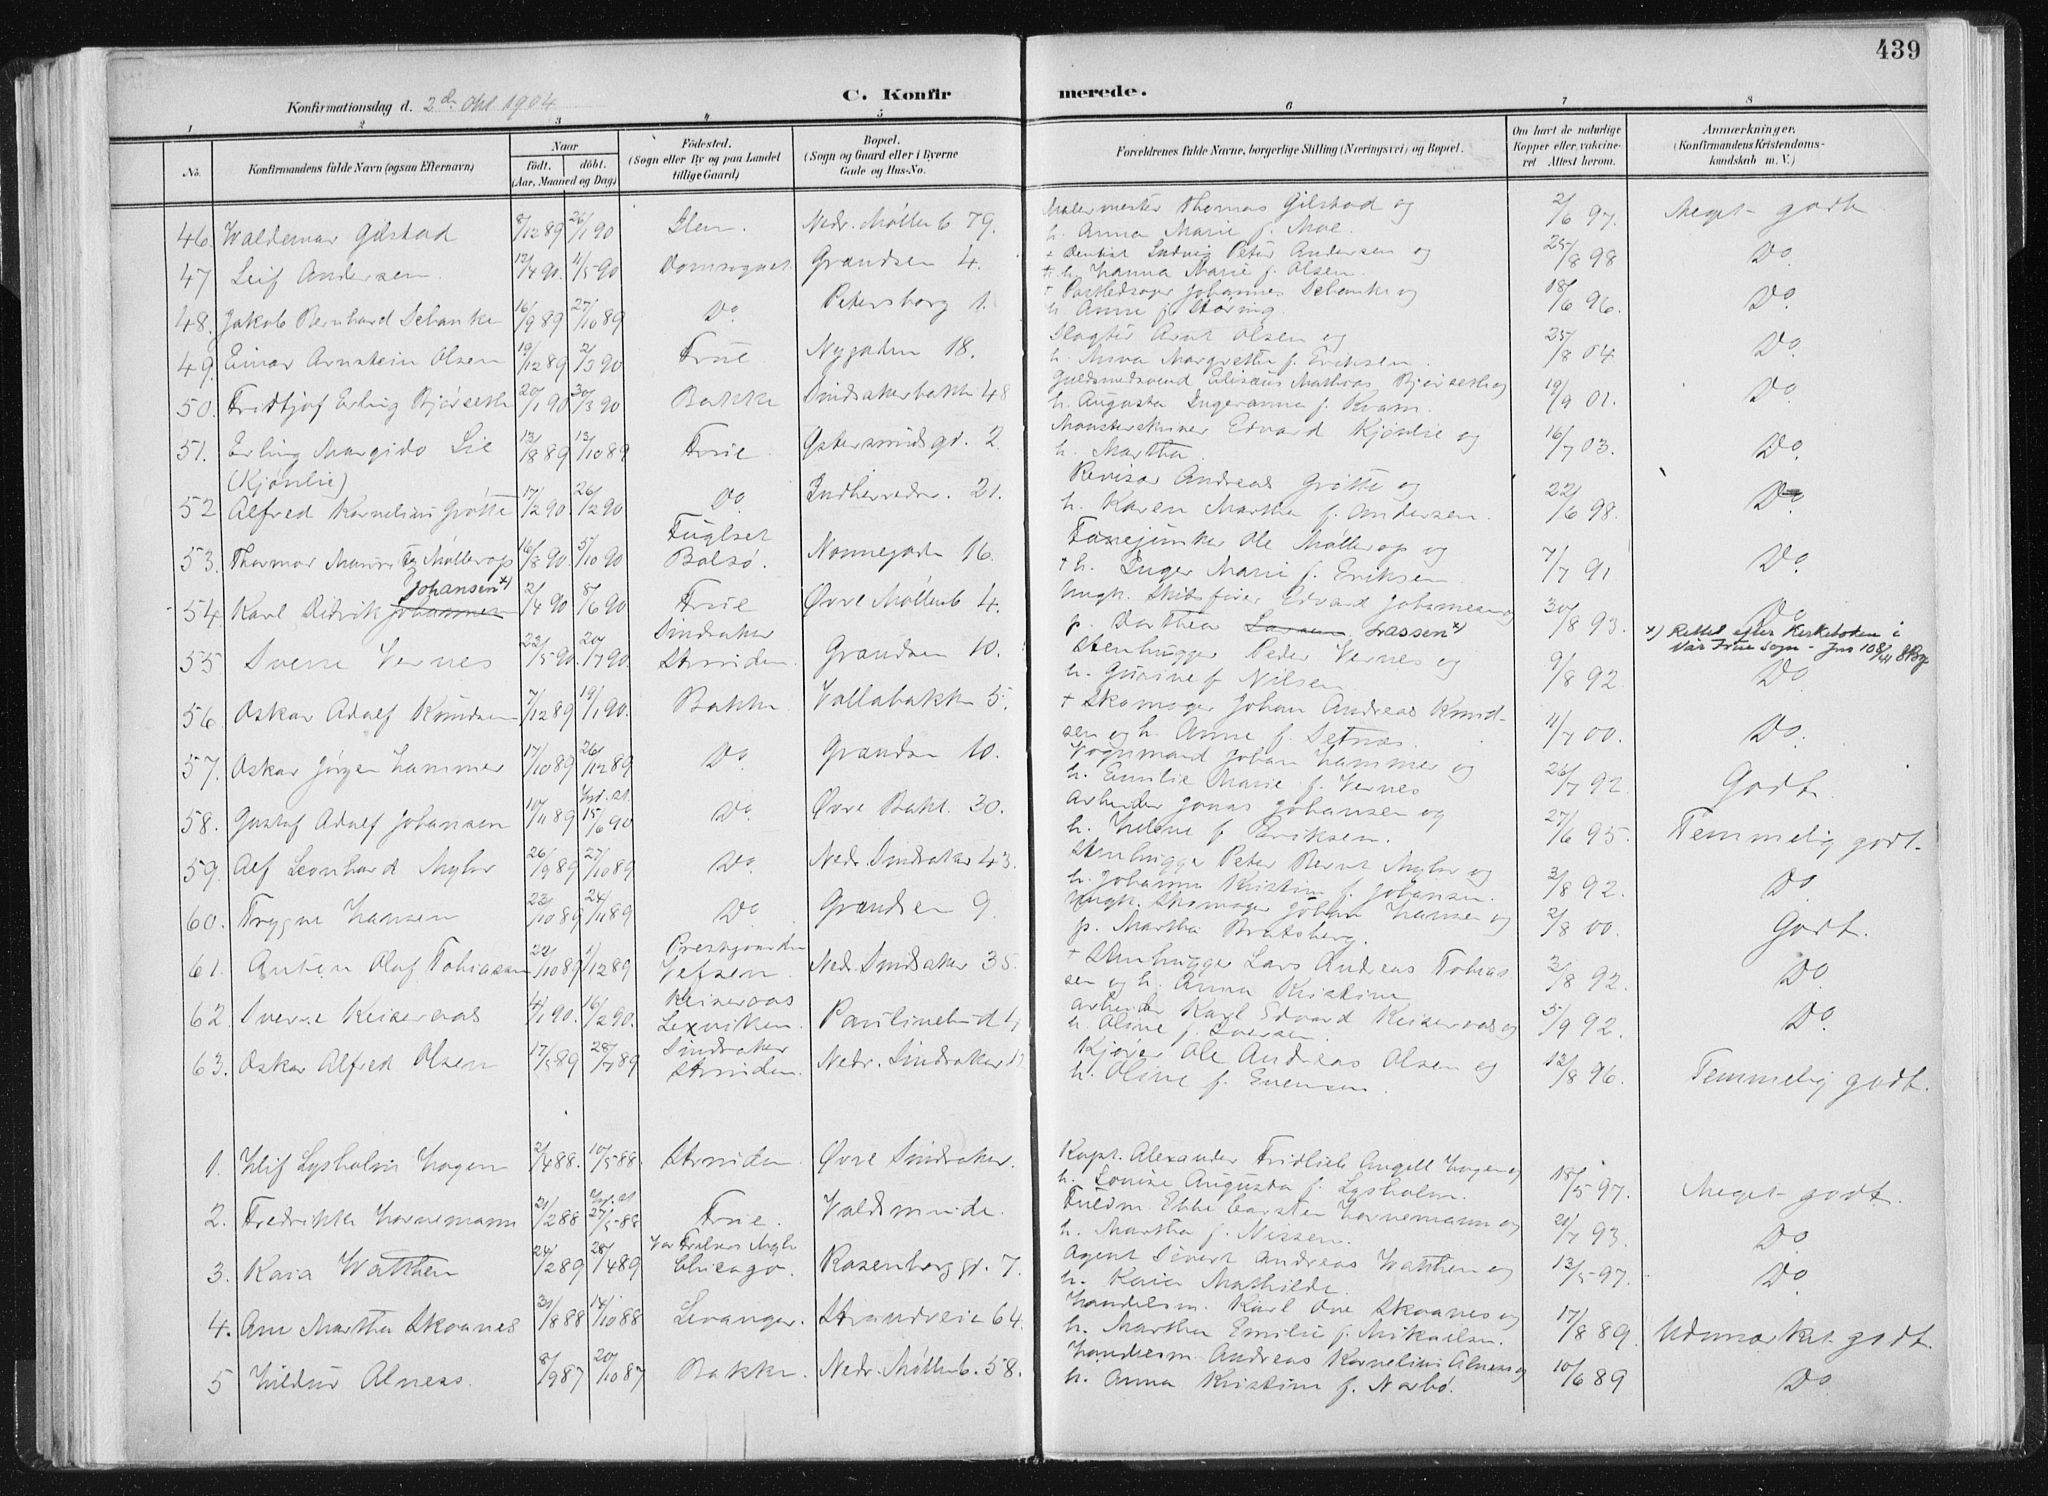 439
Konfirmationsdag d. 2den Okt 1904
C. Konfirmerede.
1 2 3 4 5 6 7 8
No. Konfirmandens fulde Navn (ogsaa Efternavn) Naar födt. döbt. (Aar, Maaned og Dag) Födested. (Sogn eller By og paa Landet tillige Gaard) Bopæl. (Sogn og Gaard eller i Byerne Gade og Hus-No. Forældrenes fulde Navne, borgerlige Stilling (Næringsvei) og Bopæl. Om havt de naturlige Kopper eller, vakcineret Attest herom. Anmærkninger. (Konfirmandens Kristendomskundskab m. V.)
46. Waldemar Gilstad 8/12 89 26/1 90 Ilen. Nedr. Møllenb 79. Malermester Thomas Gilstad og
h. Anna Marie f. Moe. 2/6 97. Meget godt.
47 Leif Andersen. 12/4 90. 4/5 90 Domsognet. Grændsen 4. + Dentist Ludvig Peter Andersen og
+ h. Hanna Marie f. Olsen. 25/8 98 Do
48. Jakob Bernhard Schanke 16/9 89 27/10 89 Do Petersborg 1. + Postledsager Johannes Schanke og
h. Anne f. Støring. 18/6 96. Do
49. Einar Arnstein Olsen 10/12 89 2/3 90 Frue Nygaden 18. Slagter Arnt Olsen og
h. Anna Margrethe f. Eriksen. 25/8 04 Do
50. Fridtjof Erling Bjørseth 20/1 90 30/3 90 Bakke Sindsakerbakke 48 Guldsmedsvend Elisæus Mathias Bjørseth og
h. Augusta Ingeranna f. Kvam. 19/9 01. Do
51. Erling Margido Lie 13/8 89 13/10 89 Frue. Østersundsgd. 2 Mønsterskriver Edvard Kjønlie og
(Kjønlie) h. Martha. 16/7 03. Do
52 Alfred Kornelius Grøtte 17/2 90. 26/2 90 Do Indherredsv. 21. Revisor Andreas Grøtte og
h. Karen Martha f. Andersen. 22/6 98. Do
53. Thormor Møllerop 16/8 90. 5/10 90 Fuglset
Bolsø. Nonnegaden 16. Fanejunker Ole Møllerop og
+ h. Inger Marie f. Eriksen. 7/7 91 Do
54. Karl Didrik Johannesen Johansen x) 2/4 90 8/6 90 Frue Øvre Møllenb 4. Ungk. Skibsfører Edvard Johannesen og
p. Dorthea Lassen x) 30/8 93. Do
x) Rettet efter Kirkeboken i
Vår Frue sogn - Jnr 108/41
55 Sverre Vernes 22/5 90. 20/7 90. Sindsaker
Strinden. Grændsen 10. Stenhugger Peder Vernes og
h. Gurine f. Nilsen 9/8 92. Do
56. Oskar Adolf Knudsen 7/12 89 19/1 90. Bakke Vollabakken 5. + Skomager Johan Andreas Knudsen
og h. Anne f. Setnæs. 11/7 00. Do.
57. Oskar Jørgen Hammer 17/10 89 26/12 89 Do Grændsen 10. Vognmand Johan Hammer og
h. Emilie Marie f. Vernes 26/7 92 Godt.
58. Gustaf Adolf Johansen 10/11 89 15/6 90 Do Øvre Bakl. 30. Arbeider Jonas Johansen og
h. Helene f. Eriksen. 27/6 95. Temmelig godt.
59. Alf Leonhard Myhr 26/9 89 27/10 89 Do Nedr. Sindsaker 43. Stenhugger Peter Bernt Myhr og
h. Johanna Kristine f. Johansen. 3/8 92. Do
60. Trygve Hansen 22/10 89 24/11 89 Do Grændsen 9. Ungk. Skomager Johan Hansen og
p. Martha Bratsberg. 2/8 00. Godt.
61. Anten Olaf Tobiassen 22/10 89 1/12 89 Prestegaarden
Vefsen. Nedr. Sindsaker 35. + Stenhugger Lars Andreas Tobiassen
og h. Anna Kristine 2/8 92. Do
62. Sverre Keiseraas 4/1 90. 16/2 90. Keiseraas
Lexviken. Paulinelund 4 Arbeider Karl Edvard Keiseraas og
h. Oline f. Iversen. 5/9 92. Do
63. Oskar Alfred Olsen 17/5 89 28/7 89 Sindsaker
Strinden. Nedr. Sindsaker Kjører Ole Andreas Olsen og
h. Oline f. Evensen. 12/8 96. Temmelig godt.
1. Lysholm Hagen 2/4 88. 10/5 88. Strinden. Øvre Sindsaker. Kapt. Alexander Fridlieb Angell Hagen og
h. Louise Augusta f. Lysholm. 18/5 97. Meget godt.
2. Fredrikke Hornemann 21/2 88 27/5 88 Frue. Valdsminde. Fuldm. Ebbe Carsten Hornemann og
h. Martha f. Nissen. 21/7 93. Do
3. Kaia Watthen 24/2 89 28/4 89 Vor Frelsers Mgh
Chicago. Rosenborggd. 7. Agent Sivert Andreas Watthen og
h. Kaia Mathilde. 13/5 97. Do
4. Ane Martha Skaanes 31/8 88 14/10 88 Levanger. Strandveie 64. Handelsm. Karl Ove Skaanes og
h. Martha Emilie f. Mikaelsen. 17/8 89. Udmærket godt.
5 Hildur Alness. 8/9 87 20/10 87 Bakke. Nedr. Møllenb. 58. Handelsm Andreas Kornelius Alness og
h. Anna Kristine f. Norbø. 10/6 89 Do